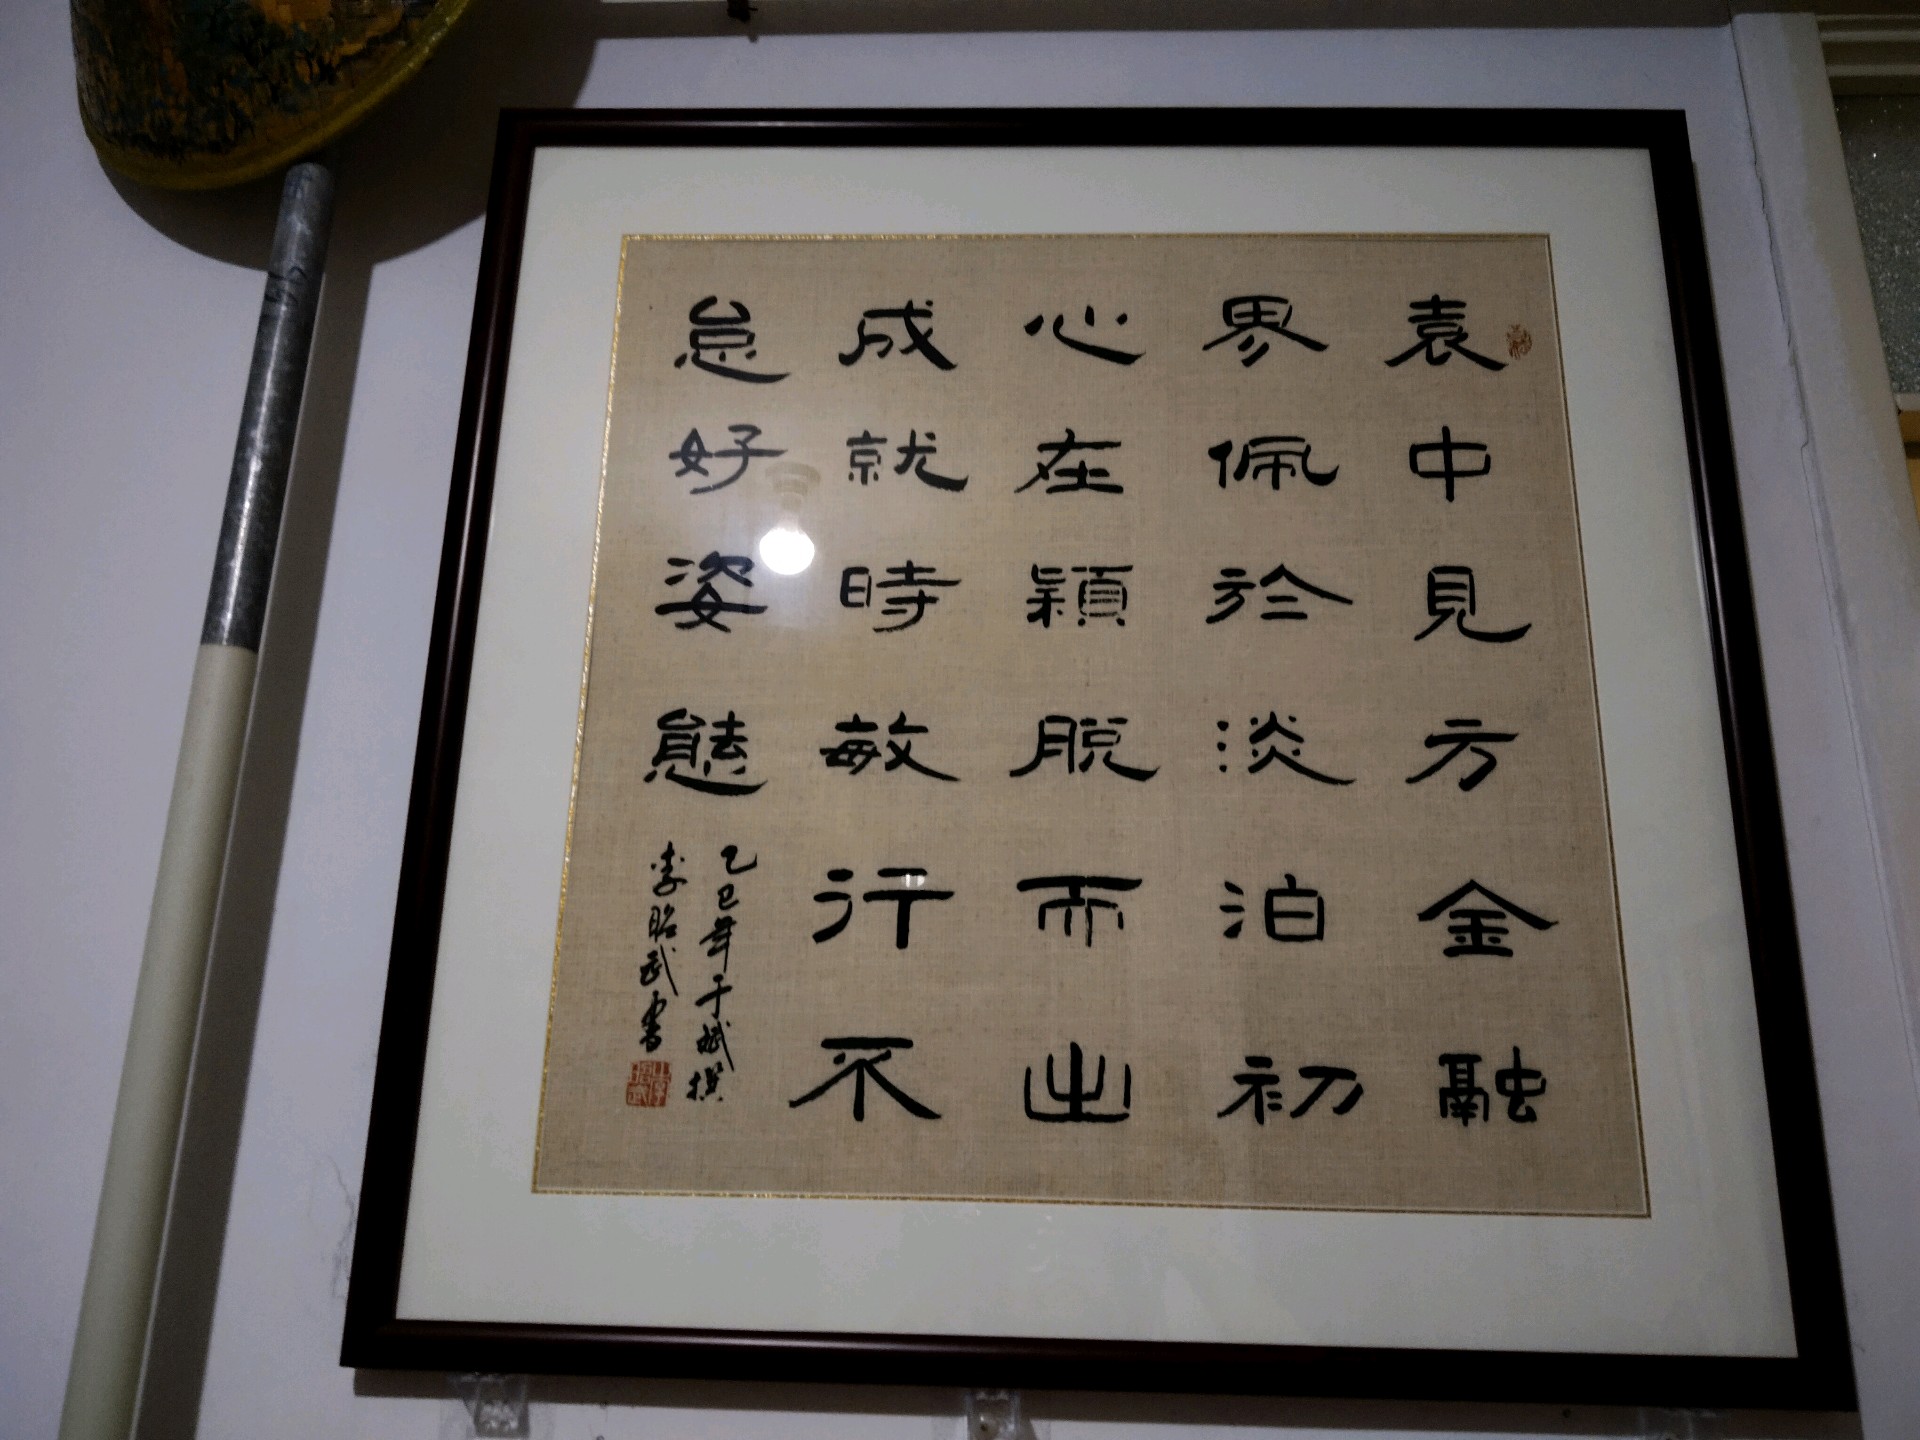 袁中見方金融
界佩於淡泊初
心在穎脫而出
成就時敏行不
怠好姿態
乙巳年于斌撰
李昭武書